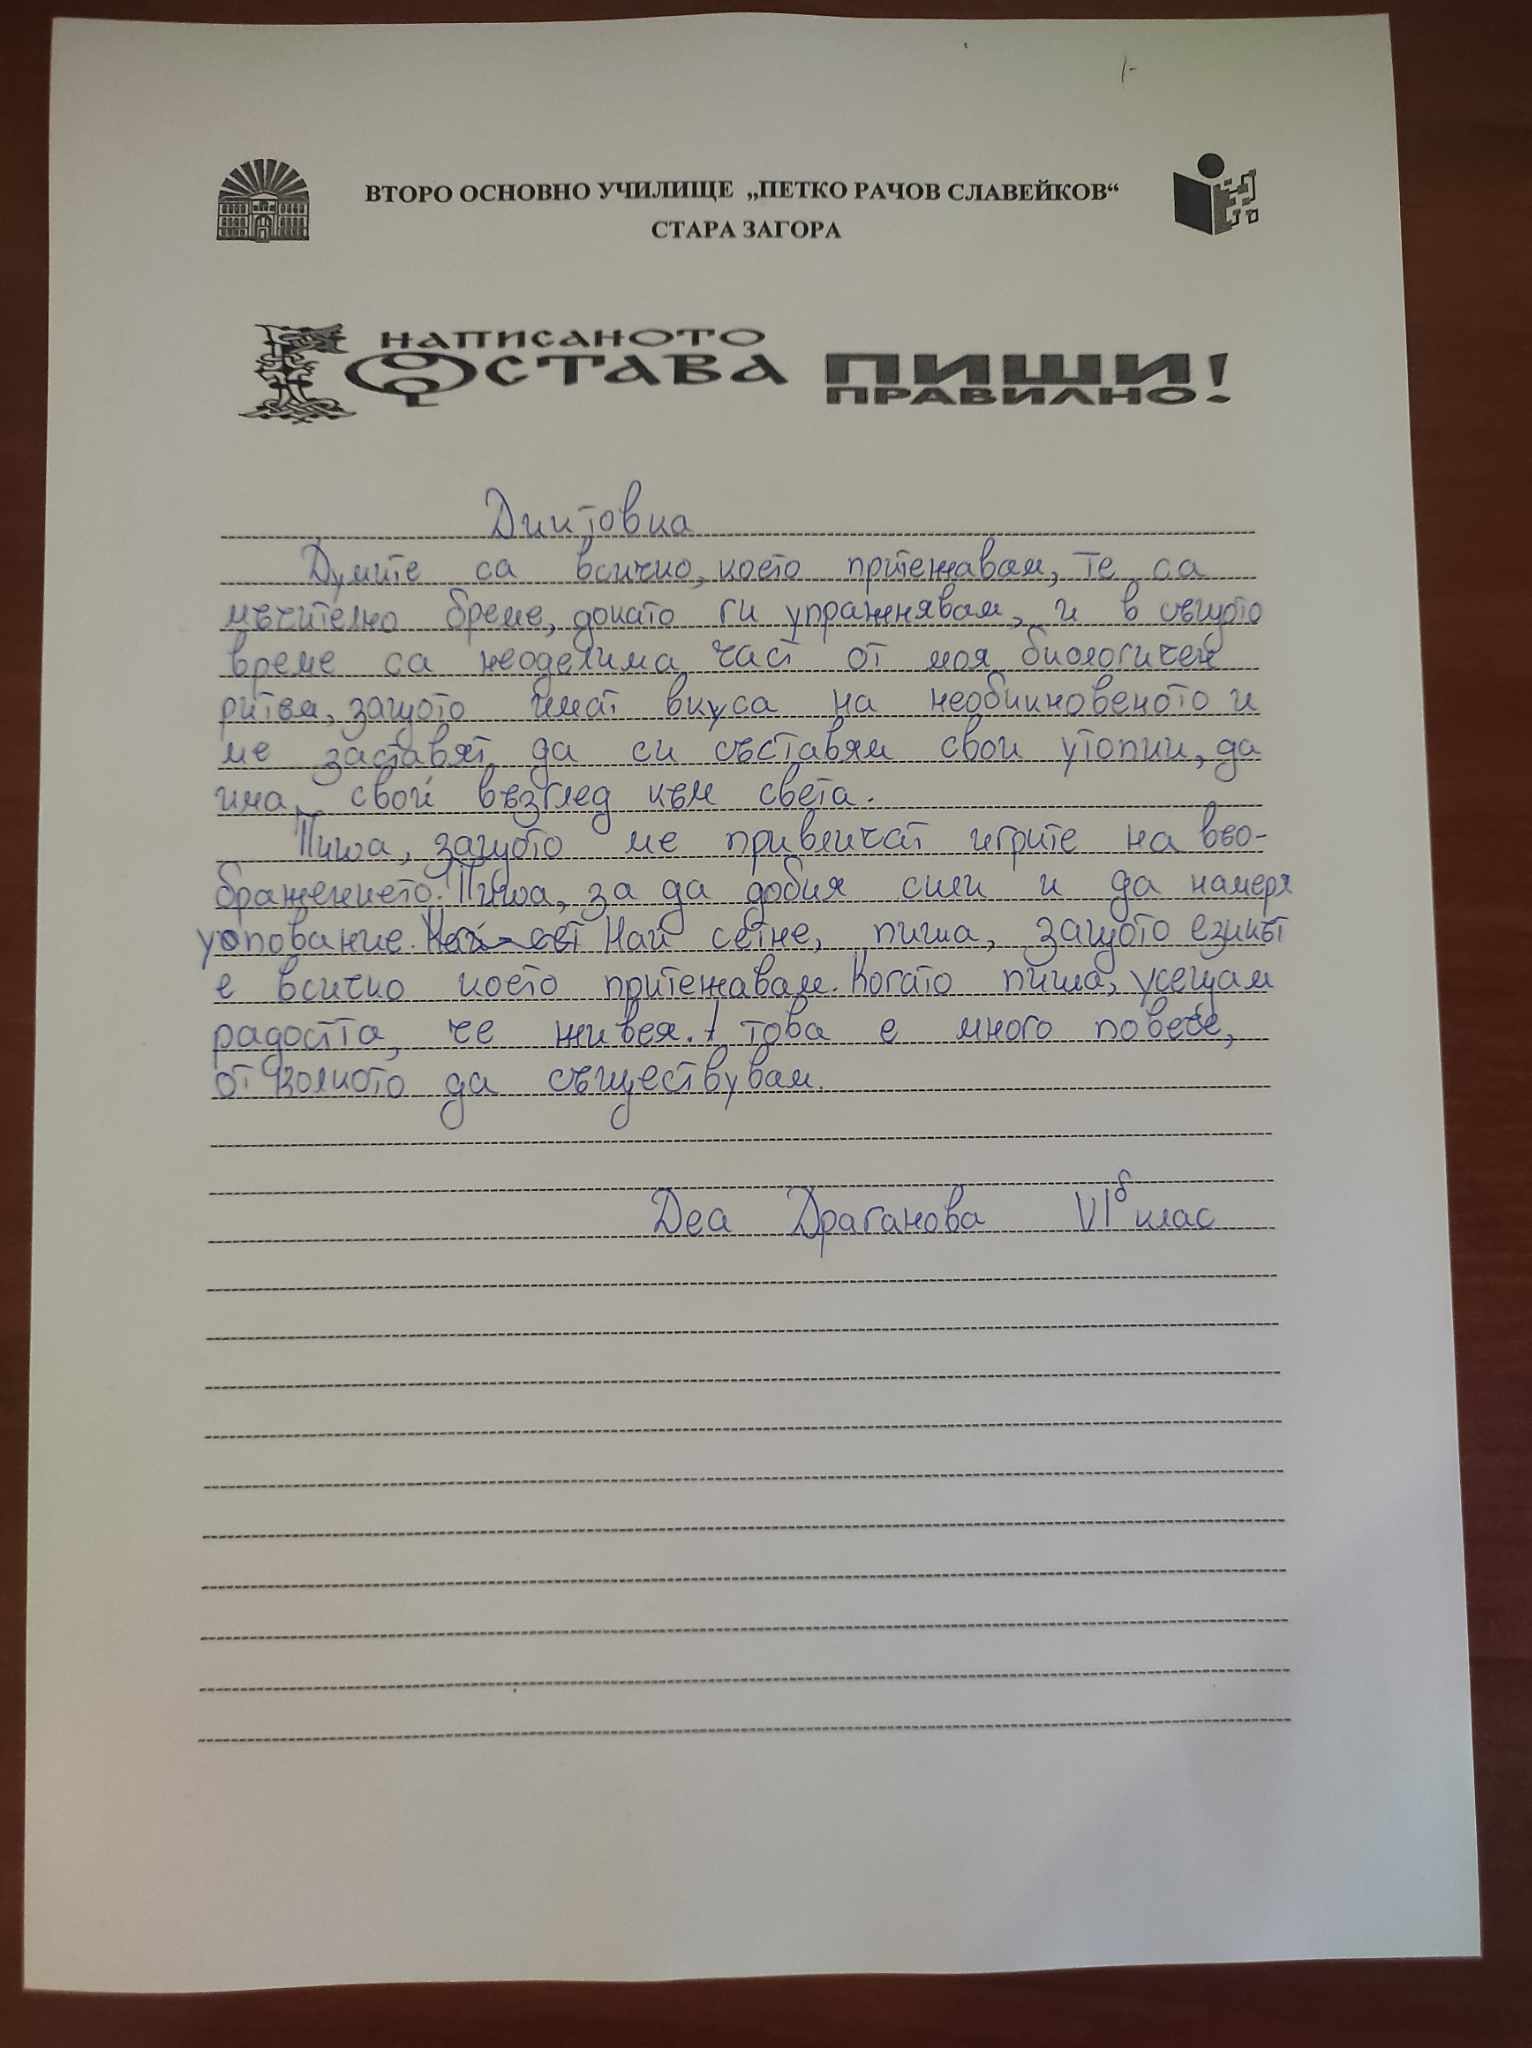 ВТОРО ОСНОВНО УЧИЛИЩЕ „ПЕТКО РАЧОВ СЛАВЕЙКОВ“
СТАРА ЗАГОРА
НАПИСАНОТО
ОСТАВА
ПИШИ
ПРАВИЛНО!
Диктовка
Думите са всичко, което притежавам, те са
мъчително бреме, докато ги упражнявам, и в същото
време са неоделима част от моя биологичен
ритъм, защото имат вкуса на необикновеното и
ме заставят да си съставям свои утопии, да
има свой възглед към света.
Пиша, защото ме привличат игрите на вво-
бражението. Пиша, за да добия сили и да намеря
упование. Най сетне, пиша, защото езикът
е всичко което притежавам. Когато пиша, усещам
радостта, че живея. това е много повече,
от колкото да съществувам.
Деа Драганова VI б клас